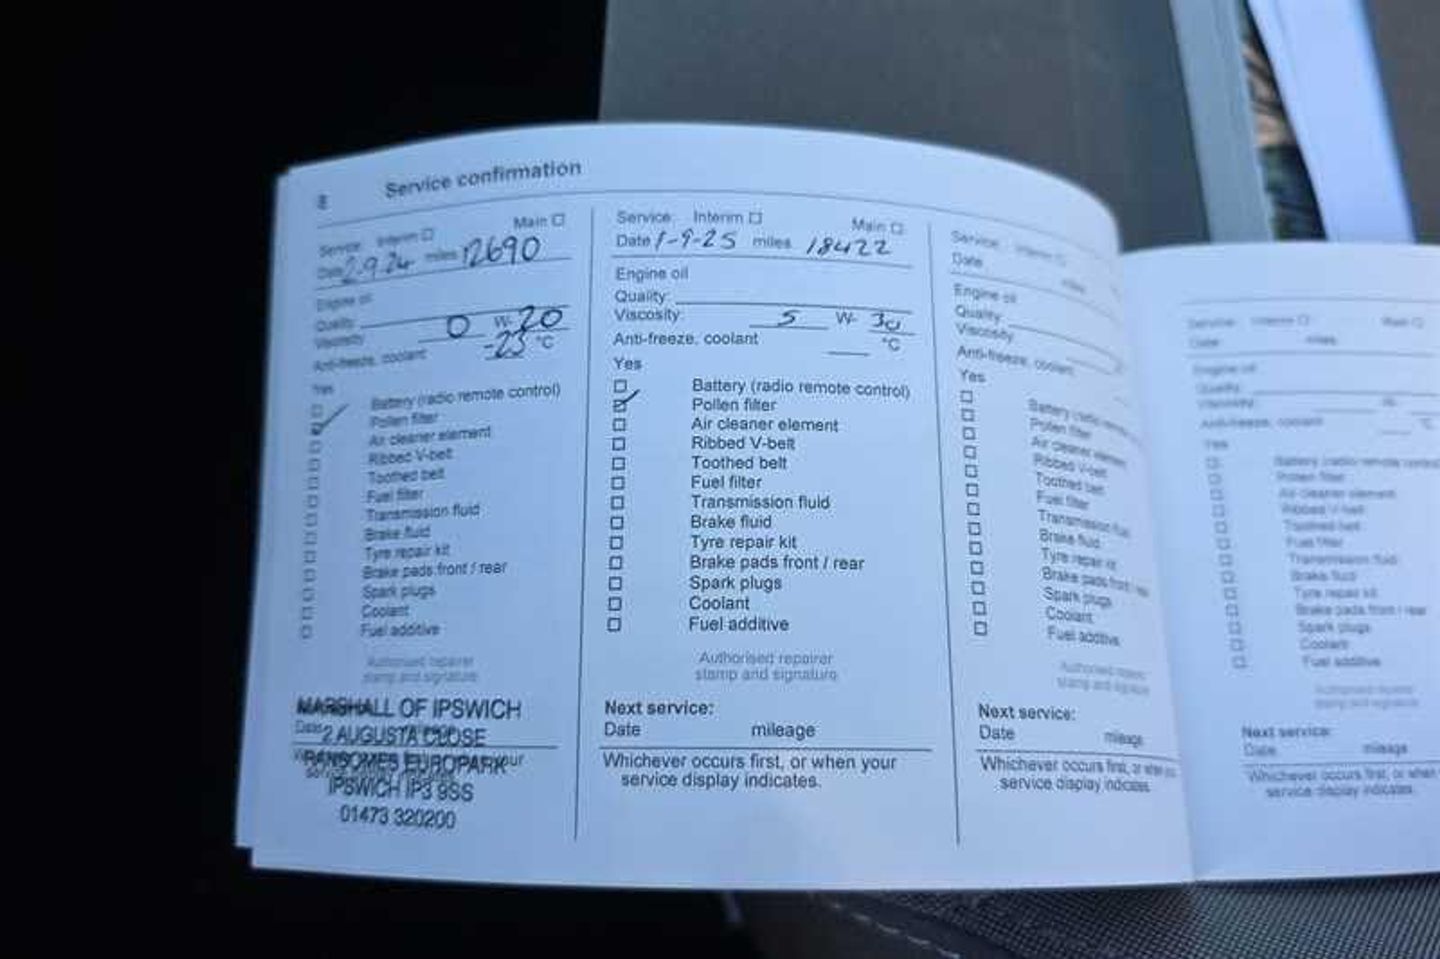 8 Service confirmation
Service: Interim Main
Date 2-9-24 miles 12690
Engine oil
Quality:
Viscosity: 0 W- 20
Anti-freeze, coolant -25 °C
Yes
Battery (radio remote control)
Pollen filter
Air cleaner element
Ribbed V-belt
Toothed belt
Fuel filter
Transmission fluid
Brake fluid
Tyre repair kit
Brake pads front / rear
Spark plugs
Coolant
Fuel additive
Authorised repairer
stamp and signature
MARSHALL OF IPSWICH
2 AUGUSTA CLOSE
RANSOMES EUROPARK
IPSWICH IP3 9SS
01473 320200
Service: Interim Main
Date 1-9-25 miles 18422
Engine oil
Quality:
Viscosity: 5 W- 30
Anti-freeze, coolant °C
Yes
Battery (radio remote control)
Pollen filter
Air cleaner element
Ribbed V-belt
Toothed belt
Fuel filter
Transmission fluid
Brake fluid
Tyre repair kit
Brake pads front / rear
Spark plugs
Coolant
Fuel additive
Authorised repairer
stamp and signature
Next service:
Date mileage
Whichever occurs first, or when your
service display indicates.
Service: Interim
Date miles
Engine oil
Quality:
Viscosity:
Anti-freeze, coolant
Yes
Battery (radio remote
Pollen filter
Air cleaner element
Ribbed V-belt
Toothed belt
Fuel filter
Transmission fluid
Brake fluid
Tyre repair kit
Brake pads front /
Spark plugs
Coolant
Fuel additive
Authorised repairer
stamp and signature
Next service:
Date mileage
Whichever occurs first, or when
service display indicates.
Service: Interim Main
Date miles
Engine oil
Quality:
Viscosity: W-
Anti-freeze, coolant °C
Yes
Battery (radio remote control)
Pollen filter
Air cleaner element
Ribbed V-belt
Toothed belt
Fuel filter
Transmission fluid
Brake fluid
Tyre repair kit
Brake pads front / rear
Spark plugs
Coolant
Fuel additive
Authorised repairer
stamp and signature
Next service:
Date mileage
Whichever occurs first, or when
service display indicates.